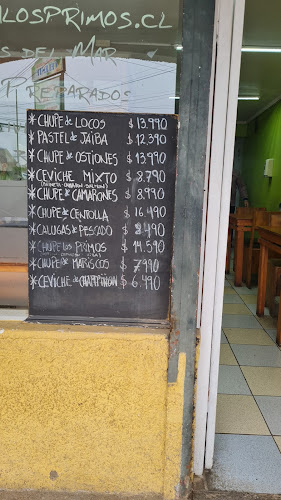 LOSPRIMOS.CL
S DEL MAR
PREPARADOS
* CHUPE de LOCOS $ 13.990
* PASTEL de JAIBA $ 12.390
* CHUPE de OSTIONES $ 13.990
* CEVICHE MIXTO $ 8.790
* CHUPE de CAMARONES $ 8.990
* CHUPE de CENTOLLA $ 16.490
* CALUGAS de PESCADO $ 8.490
* CHUPE LOS PRIMOS $ 14.590
* CHUPE de MARISCOS $ 7.990
* CEVICHE de CHAMPIÑON $ 6.490